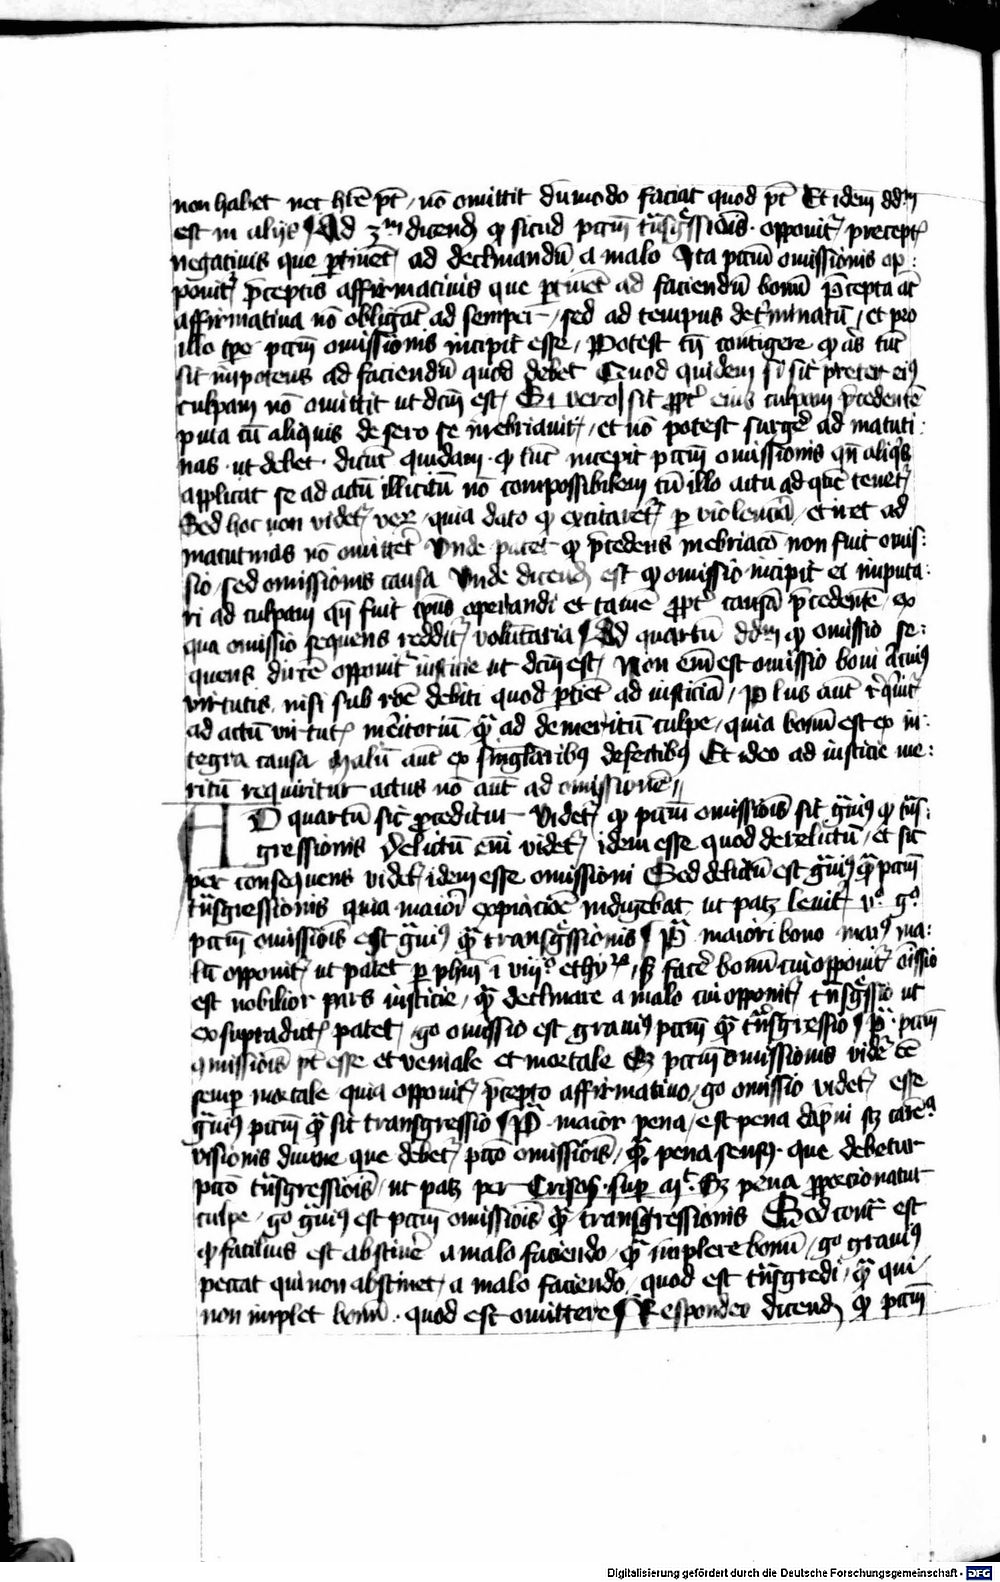 non habet nec hr̄e pt̄ / nō omittit dūmodo faciat quod pt̄ Et idem dd̄m
est in alijs ¶ Ad 3m dicend̄ qꝫ sicud pccm̄ tn̄sgͥssiōis · opponit᷑ precept᷑
negatiuis que ꝑtinēt ad declinandū a malo Ita pccm̄ omissionis op:
ponit᷑ p̄ceptis affirmatiuis que ꝑtinēt ad faciendū bonū P̄cepta at̄
affirmatiua nō obligāt ad semper / sed ad tempus det̄minatū / et pro
illo tp̄e pccm̄ omissionis incipit esse / Potest tn̄ contigere qꝫ al̄s tūc
sit impotens ad faciendū quod debet Quod quidem si sit preter ei᷒
culpam nō omittit ut dcm̄ est / Si vero sit ꝓpt᷑ eius culpam p̄cedentē
puta cū aliquis de sero se inebriauit / et nō potest surgē ad matuti:
nas · ut debet · dicūt quidam · qꝫ tūc incepit pccm̄ omissionis qn̄ aliqͥs
applicat se ad actū illicitū nō compossibilem cū illo actu ad quē tenet᷑
Sed hoc non videt᷑ ver̄ / quia dato qꝫ excitaret᷑ ꝑ violenciā / et iret ad
matutinas nō omittet̄ Vnde patet qꝫ p̄cedens inebriaco non fuit omis:
sio / sed omissionis causa Vnde dicend̄ est qꝫ omissio incipit ei imputa:
ri ad culpam qn̄ fuit tp̄us operandi et tamē ꝓpt᷑ causā p̄cedentē / ex
qua omissio sequens reddit᷑ voluntaria ¶ Ad quartū dd̄m qꝫ omissio se:
quens dir̄cē opponit᷑ iusticie ut dcm̄ est / Non em̄ est omissio boni alicui᷒
virtutis / nisi sub rōe debiti quod ꝑtiēt ad iusticiā / Plus aut̄ reqͥrit᷑
ad actū virtut᷑ m̄itoriū qͣ ad demeritū culpe / quia bonū est ex in:
tegra causa Malū aut̄ ex singl̄aribꝰ defectibꝰ Et ideo ad iusticie me:
ritū requiritur actus nō aut̄ ad omissionē //
AD quartū sic proceditur Videt᷑ qꝫ pccm̄ omissiōis sit gͣui᷒ qꝫ tn̄s:
gressionis Delictum em̄ videt᷑ idem esse quod derelictū / et sic
per consequens videt᷑ idem esse omissioni Sed delictū est gͣui᷒ qͣ pccm̄
tn̄sgressionis quia maiorē expiacōē indigebat ut patꝫ leuit᷑ v̊ g̊
pccm̄ omissiōis est gͣui᷒ qͣ transgͥssionis ¶ P̄ maiori bono mai᷒ ma:
lū opponit᷑ ut patet ꝑ phm̄ ī viij̊ ethy᷑ / sꝫ facē bonū cui opponit᷑ ōissio
est nobilior pars iusticie / qͣ declinare a malo cui opponit᷑ tn̄sgͥssio ut
ex supradict᷑ patet / go omissio est graui᷒ pccm̄ qͣ tn̄sgressio ¶ P̄ · pccm̄
omissiōis pt̄ esse et veniale et mortale Sꝫ pccm̄ omissionis vidēt ēē
semꝑ mortale quia opponit᷑ p̄cepto affirmatiuo / go omissio videt᷑ esse
gͣui᷒ pccm̄ qͣ sit transgressio ¶ P̄ · maior pena / est pena dāpni sꝫ carēͣ
visionis diuine que debet᷑ pccō omissiōis / qͣ pena sensꝰ · que debetur
pccō tn̄sgressiōis / ut patꝫ per Crisos̄ · suꝑ mt̄ · Sꝫ pena ꝓporcionatur
culpe / go gͣui᷒ est pccm̄ omissiōis qͣ transgressionis Sed contͣ est
qꝫ facilius est abstinē a malo faciendo / qͣ implere bonū / go graui᷒
peccat qui non abstinet / a malo faciendo / quod est tn̄sgredi / qͣ qui
non implet bonū · quod est omittere ¶ Respondeo dicend̄ qꝫ pccm̄
Digitalisierung gefördert durch die Deutsche Forschungsgemeinschaft - DFG